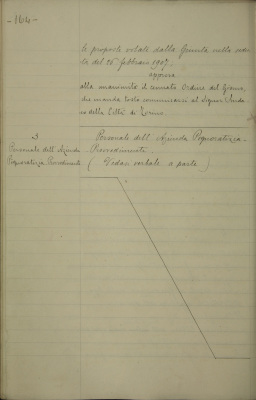 - 164 -
le proposte votate dalla Giunta nella sedu-
ta del 26 febbraio 1907.
approva
alla unanimità il connato Ordine del Giorno,
che manda tosto comunicarsi al Signor Sinda-
co della Città di Torino.
3
Personale dell'Azienda
Pignoratizia Provvedimenti
Personale dell'Azienda Pignoratizia -
Provvedimenti.
(Vedasi verbale a parte)